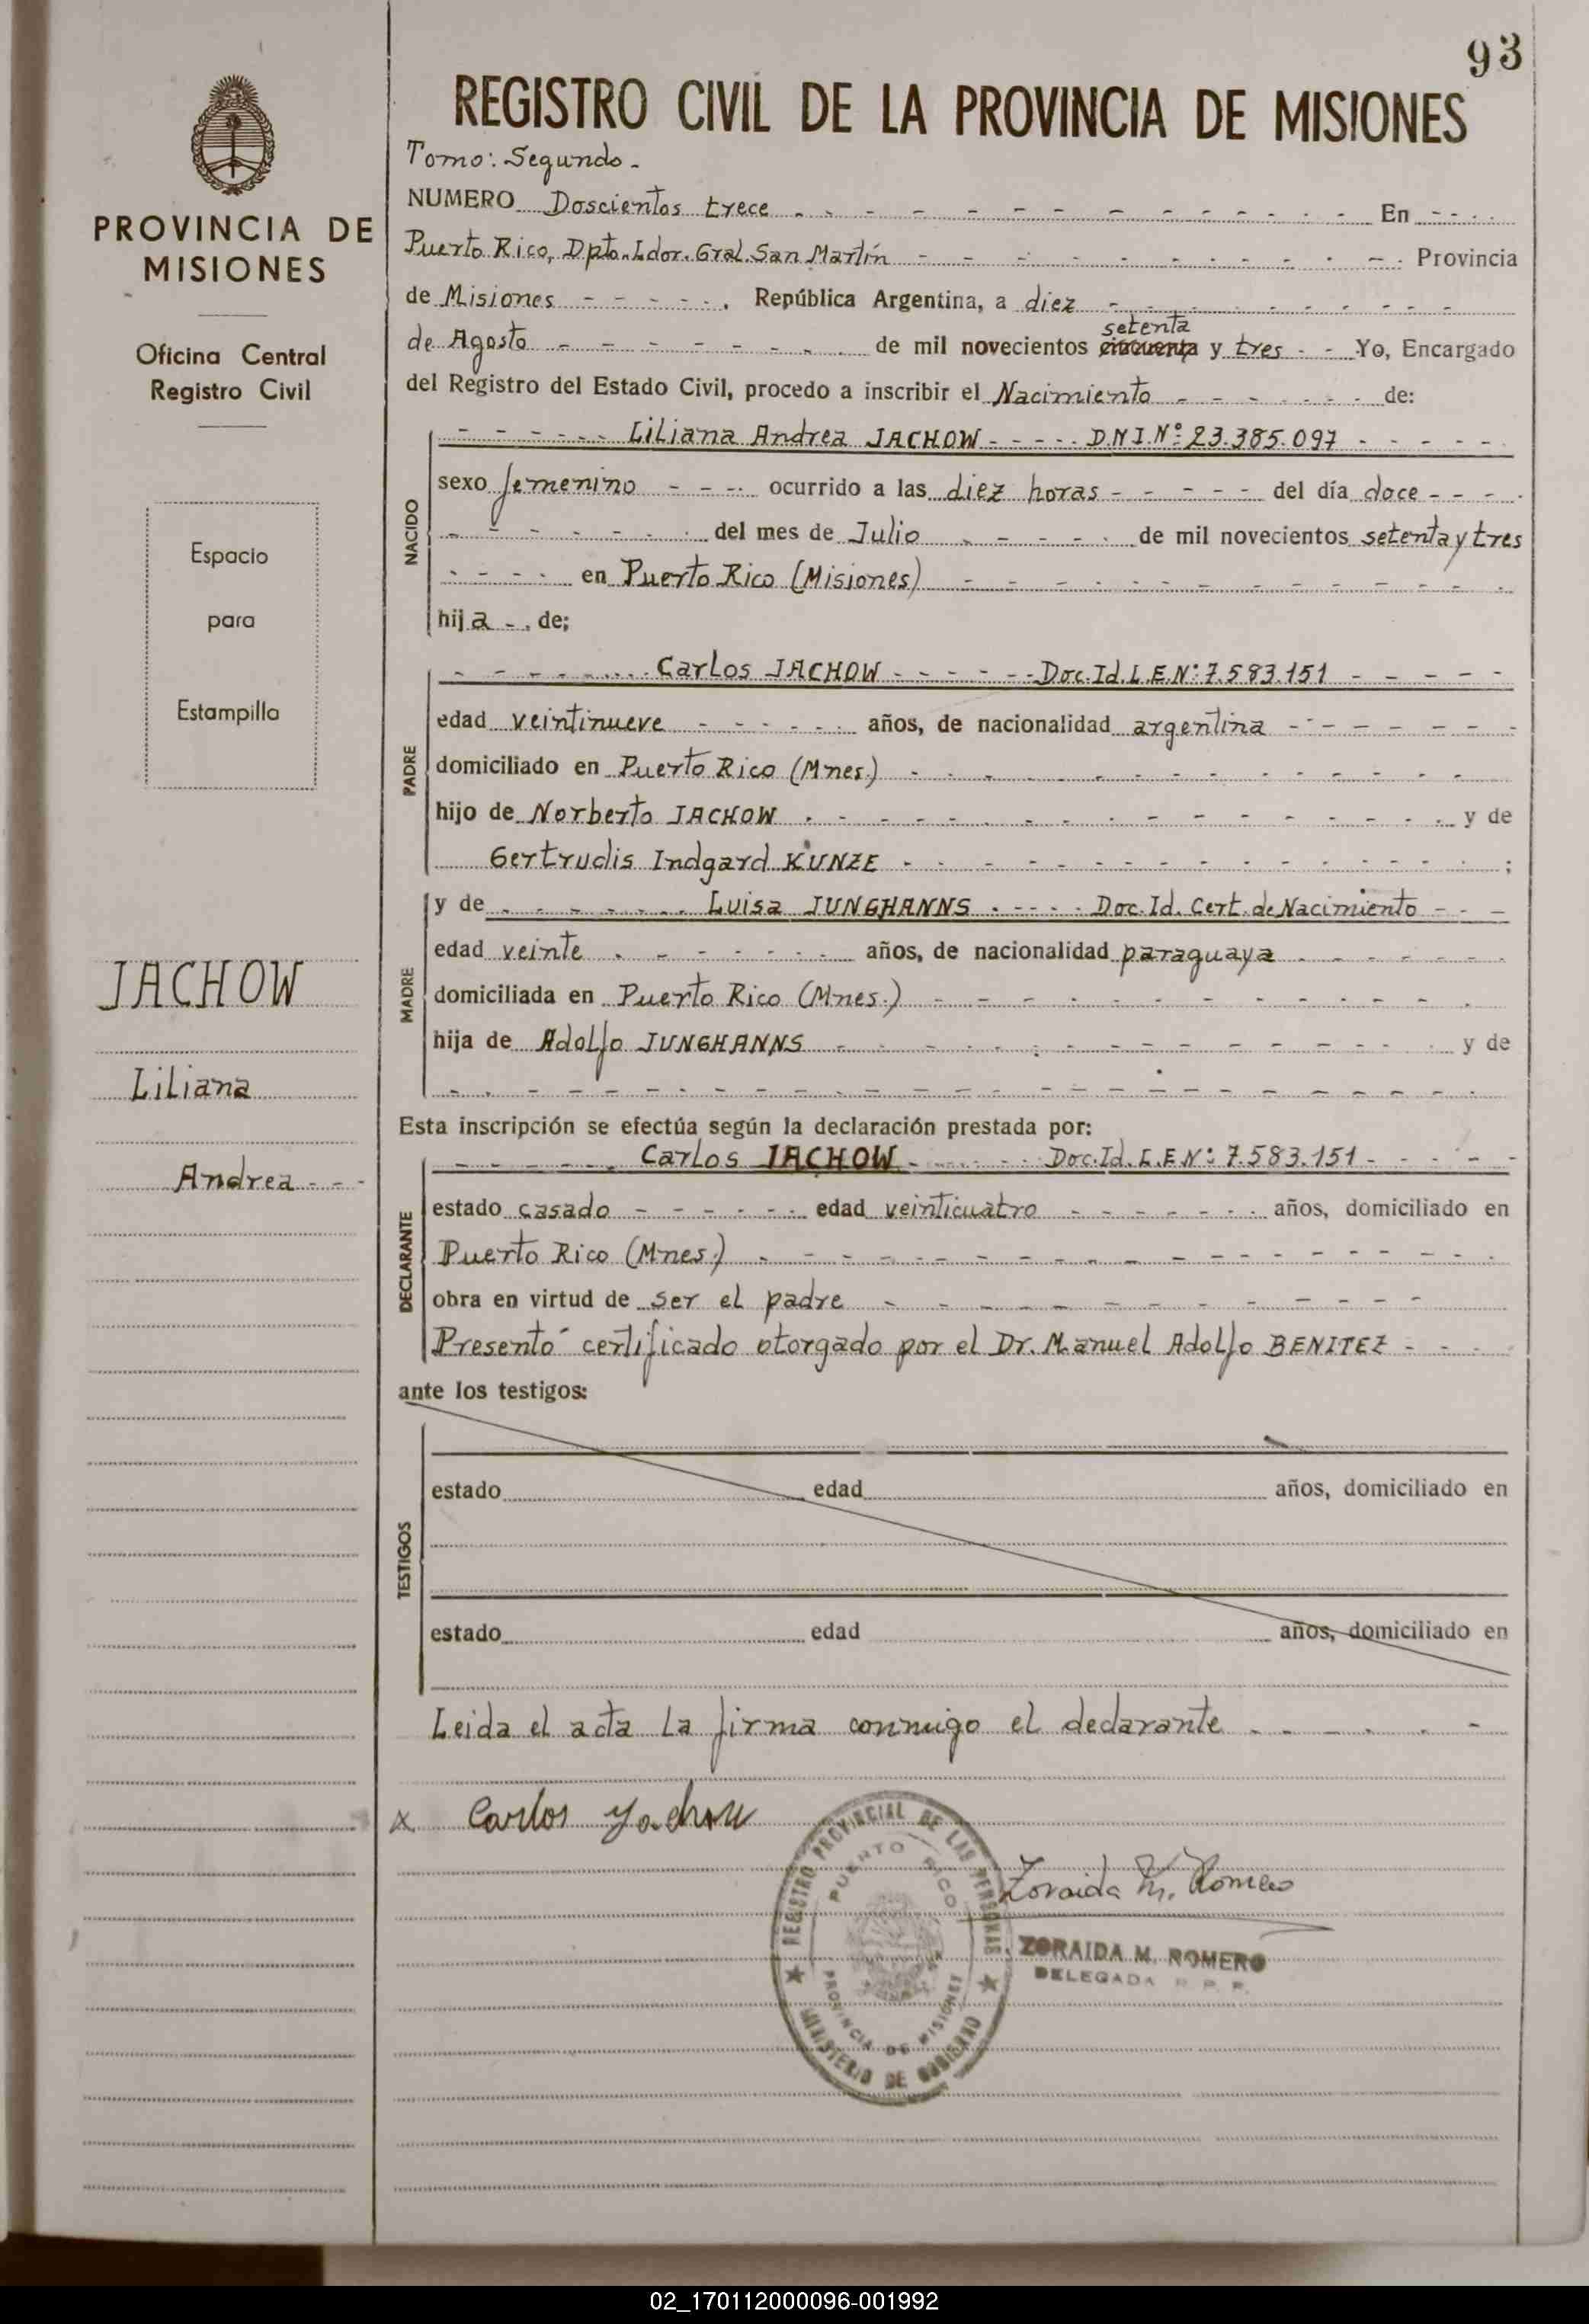 93
REGISTRO CIVIL DE LA PROVINCIA DE MISIONES
PROVINCIA DE
MISIONES
Oficina Central
Registro Civil
Espacio
para
Estampilla
JACHOW
Liliana
Andrea - - -
Tomo: Segundo -
NUMERO Doscientos trece - - - En - - -
Puerto Rico, Dpto. Ldor. Gral. San Martín - - - Provincia
de Misiones - - - República Argentina, a diez - - -
setenta
de Agosto - - - de mil novecientos cincuenta y tres - - Yo, Encargado
del Registro del Estado Civil, procedo a inscribir el Nacimiento - - - de:
NACIDO
- - - Liliana Andrea JACHOW - - - D.N.I. Nº 23.385.097 - - -
sexo femenino - - - ocurrido a las diez horas - - - del día doce - - -
- - - del mes de Julio - - - de mil novecientos setenta y tres
- - - en Puerto Rico (Misiones) - - -
hija - de;
PADRE
- - - Carlos JACHOW - - - Doc. Id. L.E. Nº 7.583.151 - - -
edad veintinueve - - - años, de nacionalidad argentina - - -
domiciliado en Puerto Rico (Mnes.) - - -
hijo de Norberto JACHOW - - - y de
Gertrudis Indgard KUNZE - - - ;
MADRE
y de - - - Luisa JUNGHANNS - - - Doc. Id. Cert. de Nacimiento - - -
edad veinte - - - años, de nacionalidad paraguaya - - -
domiciliada en Puerto Rico (Mnes.) - - -
hija de Adolfo JUNGHANNS - - - y de
- - -
Esta inscripción se efectúa según la declaración prestada por:
DECLARANTE
- - - Carlos JACHOW - - - Doc. Id. L.E Nº 7.583.151 - - -
estado casado - - - edad veinticuatro - - - años, domiciliado en
Puerto Rico (Mnes.) - - -
obra en virtud de ser el padre - - -
Presentó certificado otorgado por el Dr. Manuel Adolfo BENITEZ - - -
ante los testigos:
TESTIGOS
estado edad años, domiciliado en
estado edad años, domiciliado en
Leida el acta la firma conmigo el declarante - - -
x Carlos Jachow
REGISTRO PROVINCIAL DE LAS PERSONAS
PUERTO RICO
PROVINCIA DE MISIONES
MINISTERIO DE GOBIERNO
Zoraida M. Romero
ZORAIDA M. ROMERO
DELEGADA R. P. P.
02_170112000096-001992